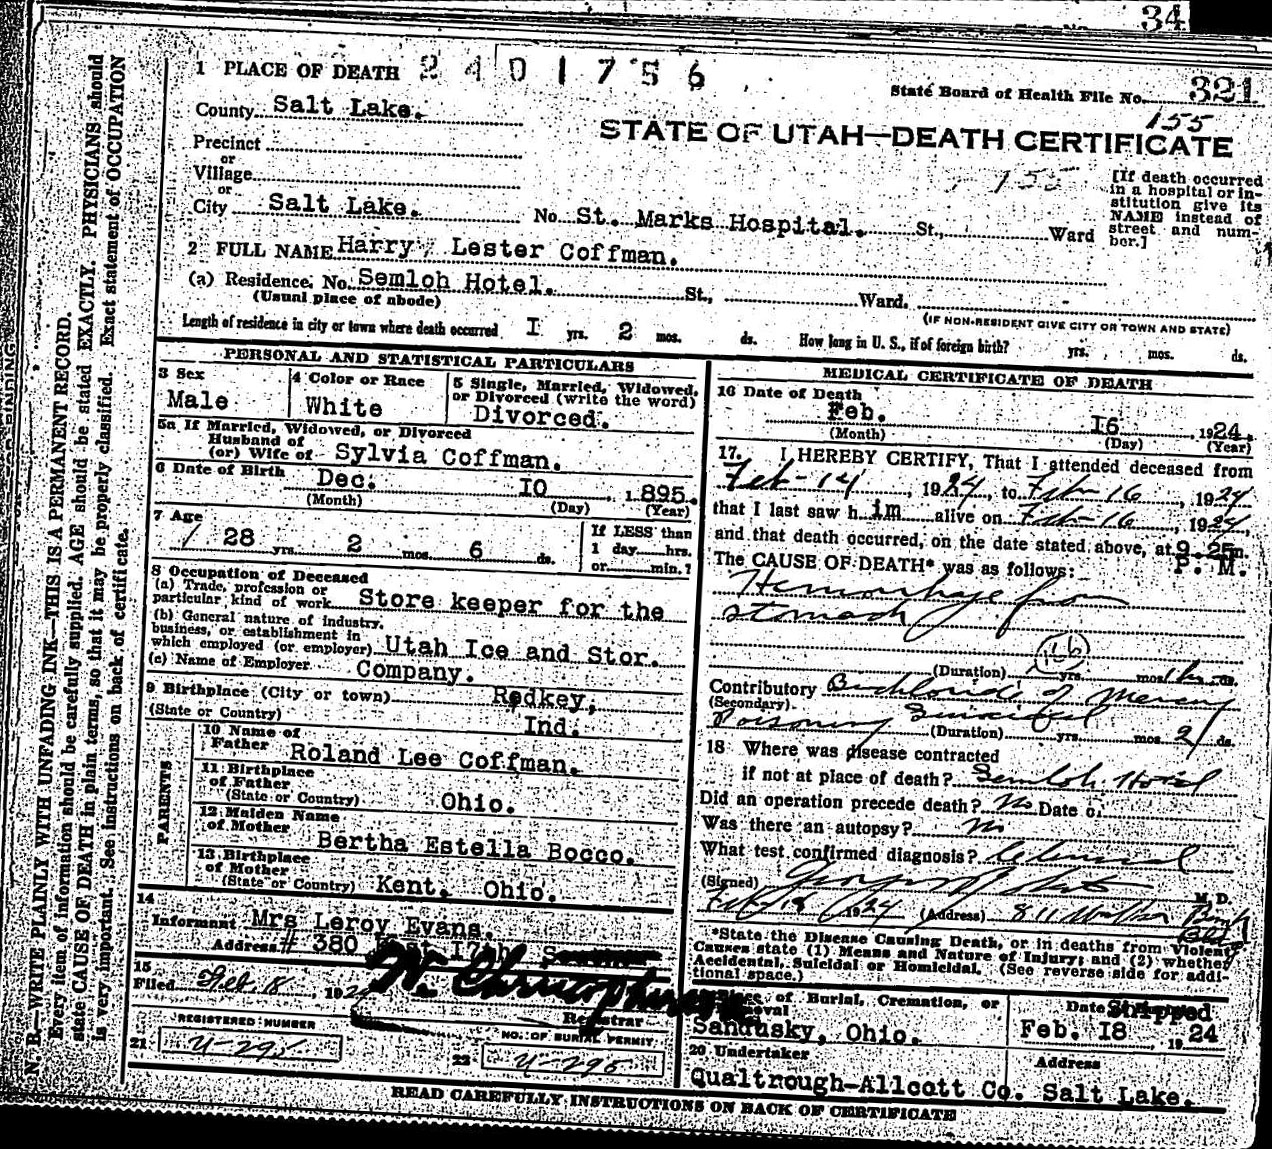 34
1 PLACE OF DEATH 2401756
State Board of Health File No. 321
155
County Salt Lake.
STATE OF UTAH—DEATH CERTIFICATE
Precinct
or
Village
or
155
[If death occurred in a hospital or institution give its NAME instead of street and number.]
City Salt Lake. No. St. Marks Hospital. St., Ward
2 FULL NAME Harry, Lester Coffman.
(a) Residence. No. Semloh Hotel. St., Ward.
(Usual place of abode) (IF NON-RESIDENT GIVE CITY OR TOWN AND STATE)
Length of residence in city or town where death occurred I yrs. 2 mos. ds. How long in U. S., if of foreign birth? yrs. mos. ds.
PERSONAL AND STATISTICAL PARTICULARS
3 Sex
Male
4 Color or Race
White
5 Single, Married, Widowed, or Divorced (write the word)
Divorced.
5a If Married, Widowed, or Divorced
Husband of
(or) Wife of Sylvia Coffman.
6 Date of Birth Dec. IO, 1895.
(Month) (Day) (Year)
7 Age
28 yrs. 2 mos. 6 ds.
If LESS than
1 day hrs.
or min.?
8 Occupation of Deceased
(a) Trade, profession or
particular kind of work Store keeper for the
(b) General nature of industry,
business, or establishment in
which employed (or employer) Utah Ice and Stor.
(c) Name of Employer Company.
9 Birthplace (City or town) Redkey,
(State or Country) Ind.
PARENTS
10 Name of
Father Roland Lee Coffman.
11 Birthplace
of Father
(State or Country) Ohio.
12 Maiden Name
of Mother Bertha Estella Bocco.
13 Birthplace
of Mother
(State or Country) Kent. Ohio.
14
Informant Mrs Leroy Evans.
Address # 380 East
15
Filed Feb. 18, 192
Registrar
REGISTERED NUMBER
21 U-295
NO. OF BURIAL PERMIT
22 U-295
MEDICAL CERTIFICATE OF DEATH
16 Date of Death
Feb. I6, 1924.
(Month) (Day) (Year)
17. I HEREBY CERTIFY, That I attended deceased from
Feb-14, 1924, to Feb-16, 1924
that I last saw him alive on Feb-16, 1924,
and that death occurred, on the date stated above, at 9.25 m.
P. M.
The CAUSE OF DEATH* was as follows:
Hemorrhage from
stomach
166
(Duration) yrs. mos. ds.
Contributory Bichloride of Mercury
(Secondary)
Poisoning Suicidal
(Duration) yrs. mos. 2 ds.
18 Where was disease contracted
if not at place of death? Semloh Hotel
Did an operation precede death? No Date of
Was there an autopsy? No
What test confirmed diagnosis? Clinical
(Signed) M. D.
Feb 18 1924 (Address) 811 Walker Bank
Bldg
*State the Disease Causing Death, or in deaths from Violent
Causes state (1) Means and Nature of Injury; and (2) whether
Accidental, Suicidal or Homicidal. (See reverse side for addi-
tional space.)
Place of Burial, Cremation, or
Removal
Sandusky, Ohio.
Date Shipped
Feb. I8, 1924
20 Undertaker
Qualtrough-Allcott Co.
Address
Salt Lake.
READ CAREFULLY INSTRUCTIONS ON BACK OF CERTIFICATE
N. B.—WRITE PLAINLY WITH UNFADING INK—THIS IS A PERMANENT RECORD.
Every item of information should be carefully supplied. AGE should be stated EXACTLY. PHYSICIANS should
state CAUSE OF DEATH in plain terms, so that it may be properly classified. Exact statement of OCCUPATION
is very important. See instructions on back of certificate.